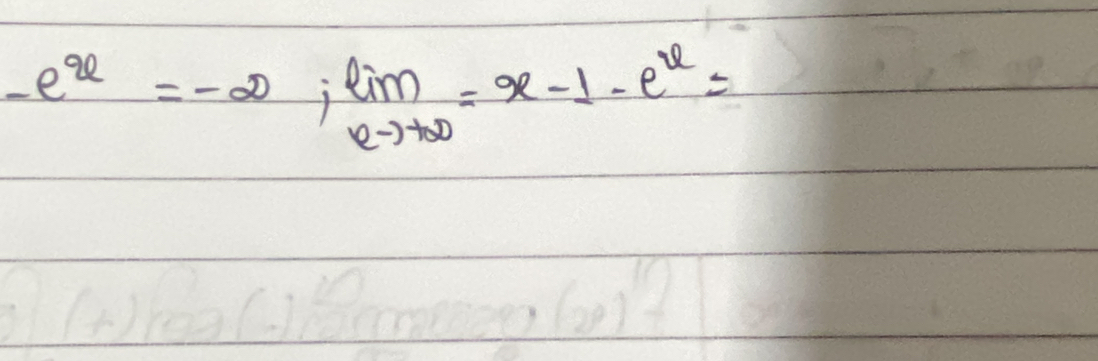 -eˣ = -∞ ; lim = x - 1 - eˣ =
x→+∞